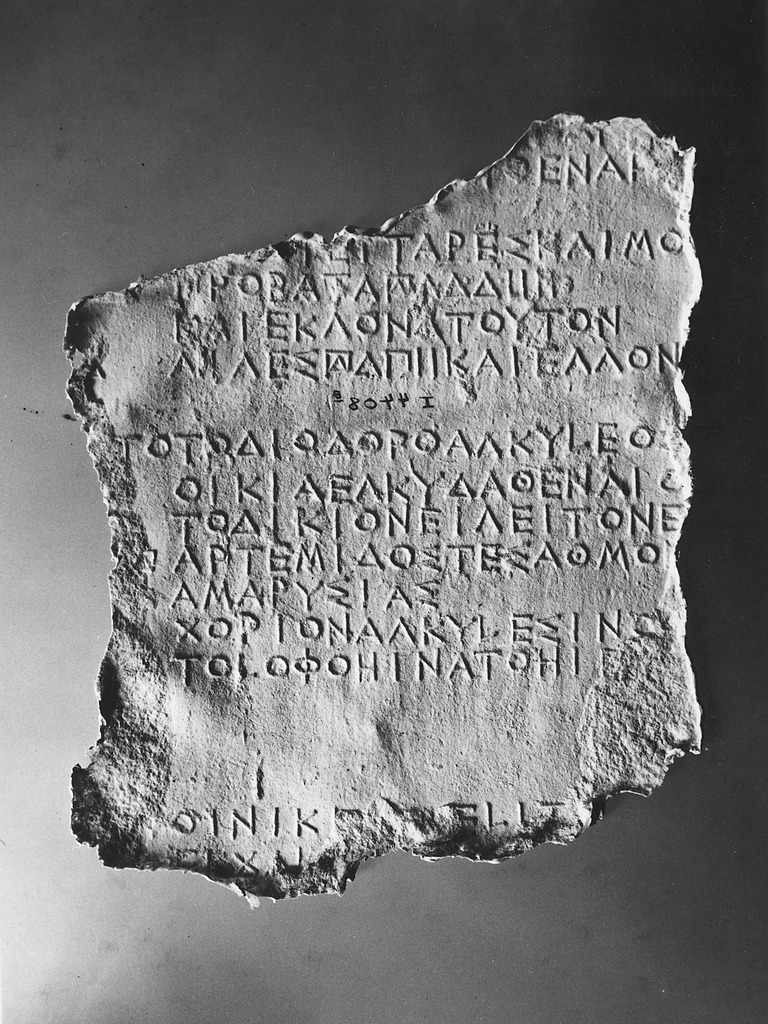 ΘΕΝΑΙ
ΤΕΤΤΑΡΕΣΚΑΙΜΟ
ΠΡΟΒΑΤΑ𐅄ΔΔΔΙΙΙ
ΚΑΙΕΚΛΟΝΑΤΟΥΤΟΝ
ΑΙΛΕΣ𐅄ΔΠΙΙΚΑΙΕΛΛΟΝ
Ξ8044 I
ΤΟΤΩΔΙΟΔΟΡΟΑΛΚΥΙΕΟ
ΟΙΚΙΑΕΛΚΥΔΑΘΕΝΑΙΟ
ΤΟΔΙΚΙΟΝΕΙΛΕΙΤΟΝΕ
ΑΡΤΕΜΙΔΟΣΤΕΣΑΘΜΟ
ΑΜΑΡΥΣΙΑΣ
ΧΟΡΙΟΝΑΛΚΥΙΕΣΙΝ
ΤΟΛΟΦΟΗΙΝΑΤΟΗΙ
ΟΙΝΙΚ